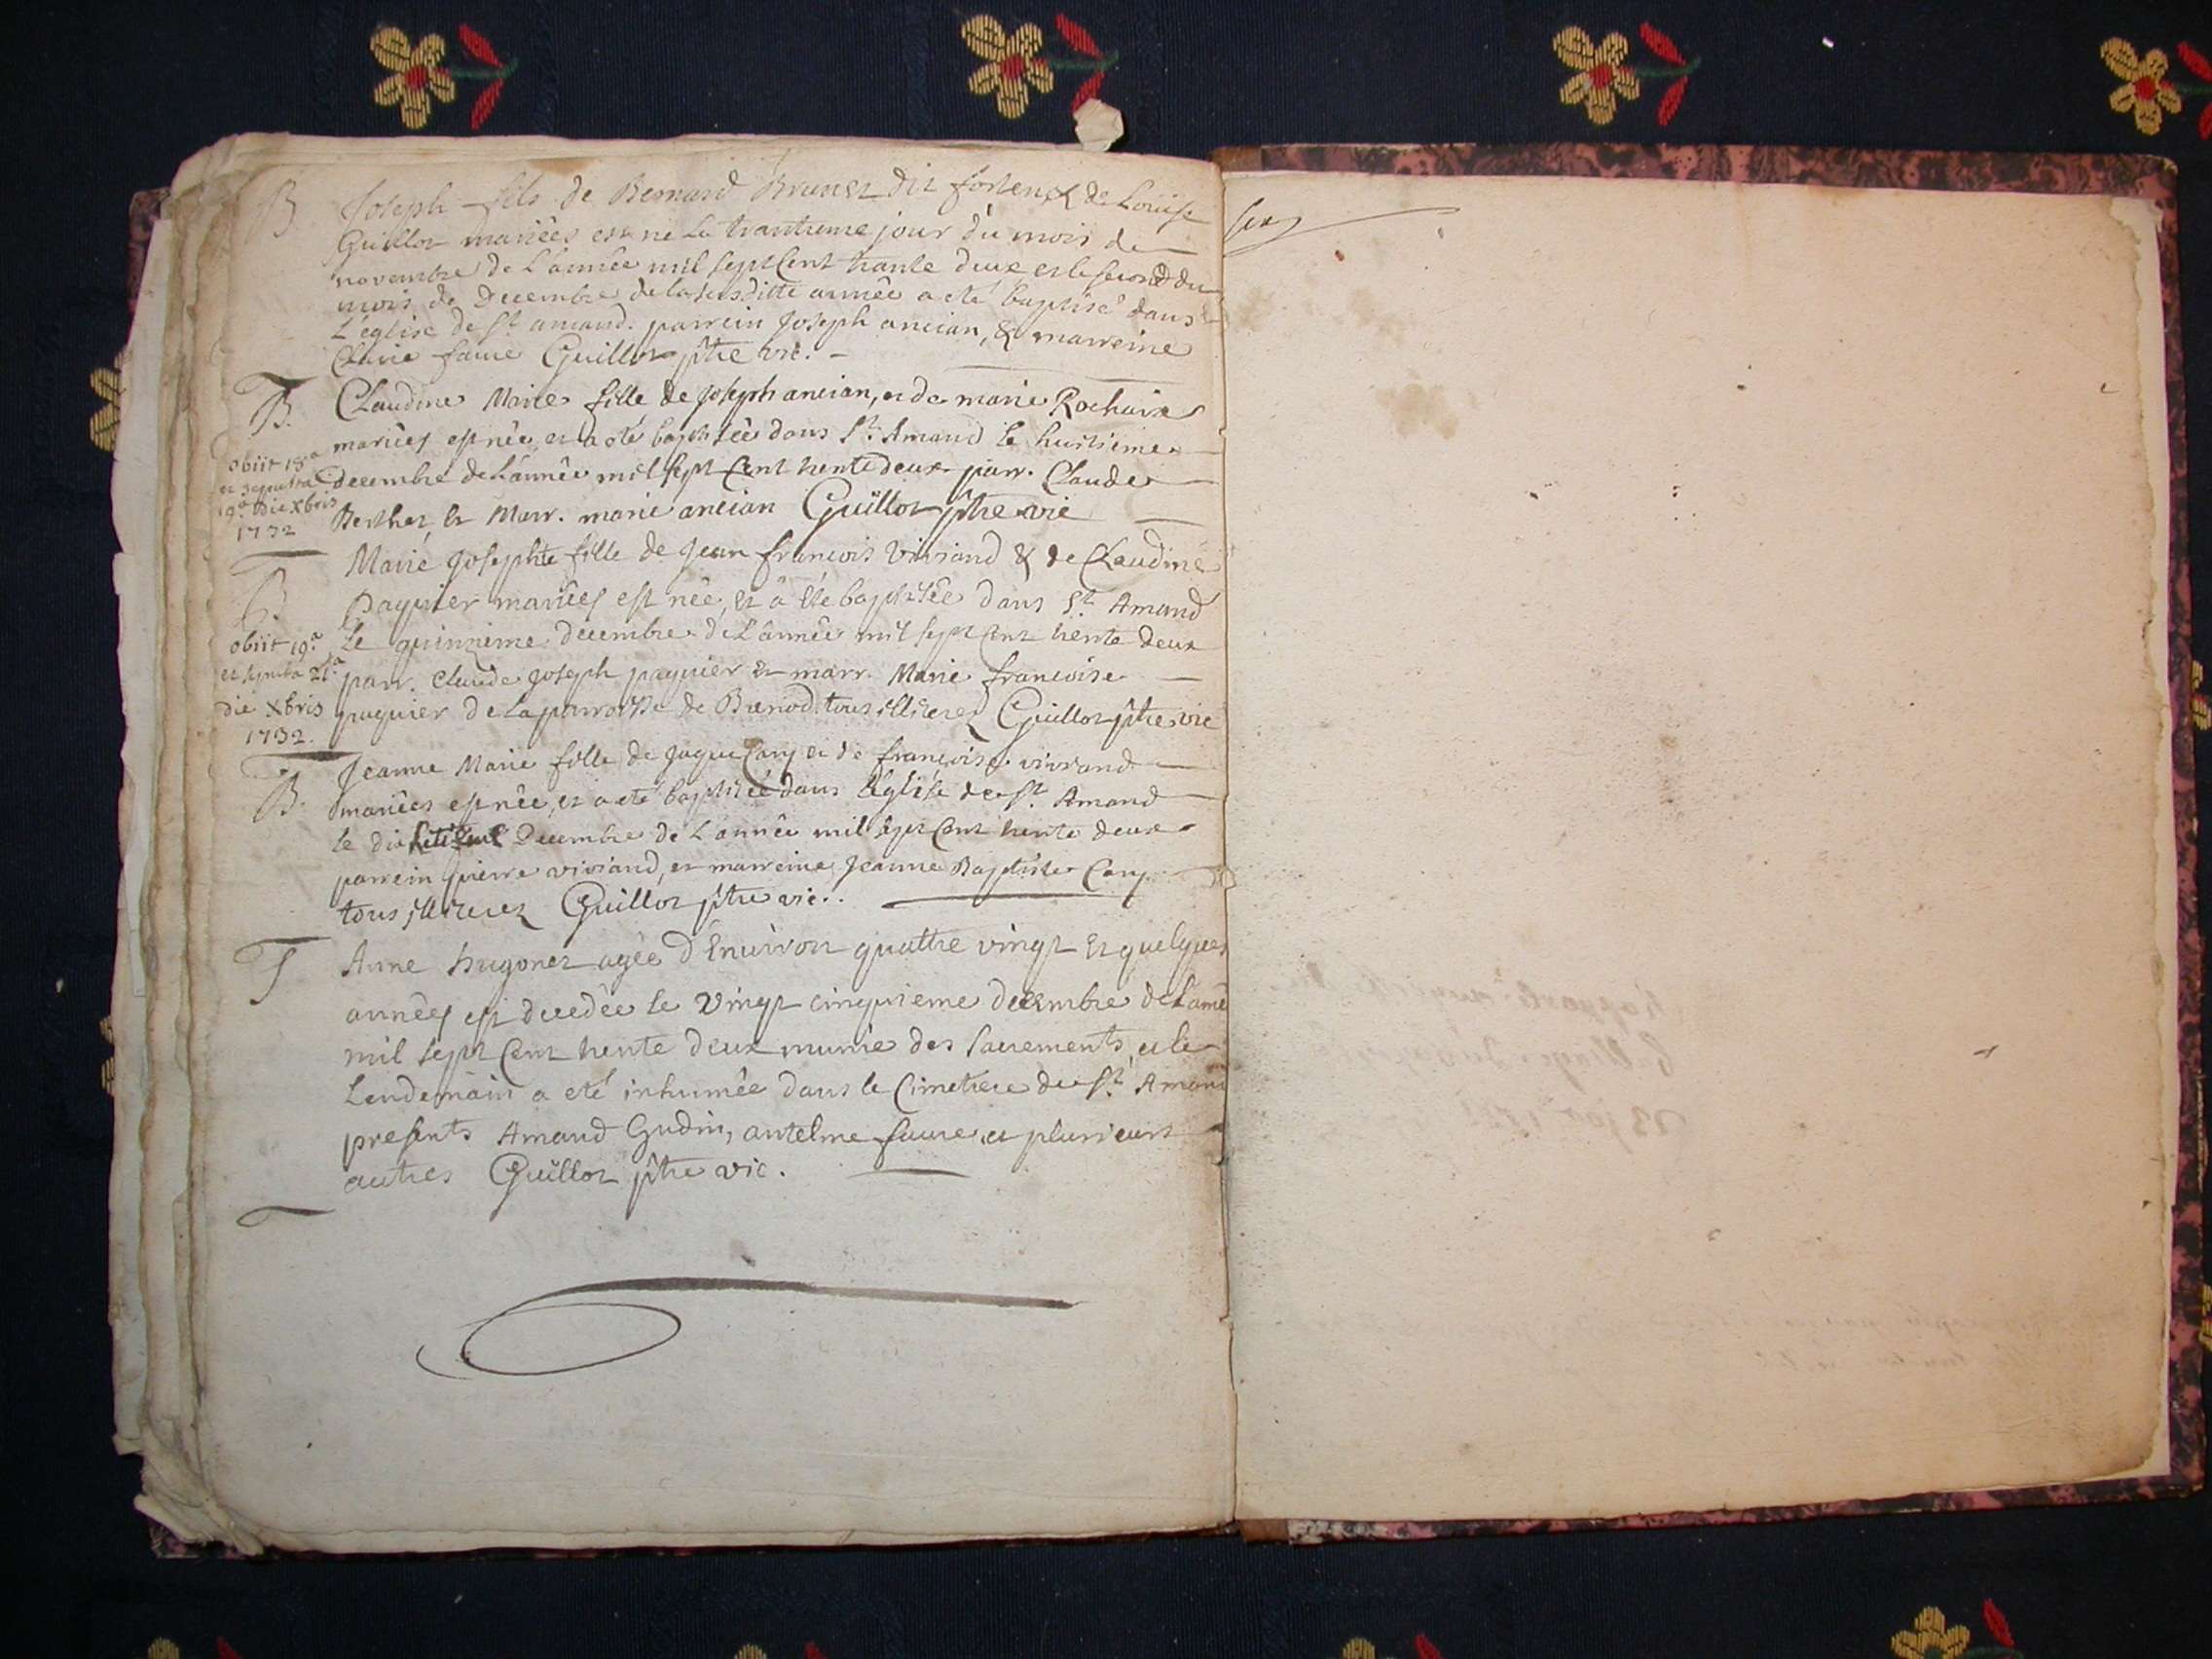 B. Joseph fils de Bernard Brunet dit forten & de Louise
Guillot mariées est né Le trantieme jour du mois de
novembre de L'année mil sept Cent trante deux et le second du
mois de Decembre de la susditte année a eté baptisé dans
L'église de St amand. parrein Joseph ancian, & marreine
Guillot ptre vic.
B. Claudine Marie fille de Joseph ancian, et de marie Rochaix
mariées est née, et a eté baptisée dans St Amand le huitieme
obiit 18a
decembre de L'année mil sept Cent trente deux parr. Claude
et sepulta
19a die Xbris
Berthet, et Marr. marie ancian Guillot ptre vic
1732
Marie Josephte fille de Jean francois Viviand & de Claudine
B. paquier mariées est née, et a été baptisée dans St Amand
obiit 19a
Le quinzieme decembre de L'année mil sept Cent trente deux
et sepulta 21a
parr. Claude Joseph paquier et marr. Marie francoise
die Xbris
paquier de La parroisse de Brenod. tous illiteres Guillot ptre vic
1732.
Jeanne Marie fille de Jaque Cary et de françoise viviand
B. mariées est née, et a eté baptisée dans L'église de St Amand
le Decembre de L'année mil sept Cent trente deux
parrein pierre viviand, et marreine Jeanne Baptiste Cary
tous illiteres Guillot ptre vic.
S Anne hugonet agée d'Environ quattre vingt et quelques
années est decedée le Vingt cinquieme decembre de L'ané
mil sept Cent trente deux munie des Sacrements, et le
Lendemain a eté inhumée dans le Cimetiere de St Amand
presents Amand Gudin, antelme faure, et plusieurs
autres Guillot ptre vic.